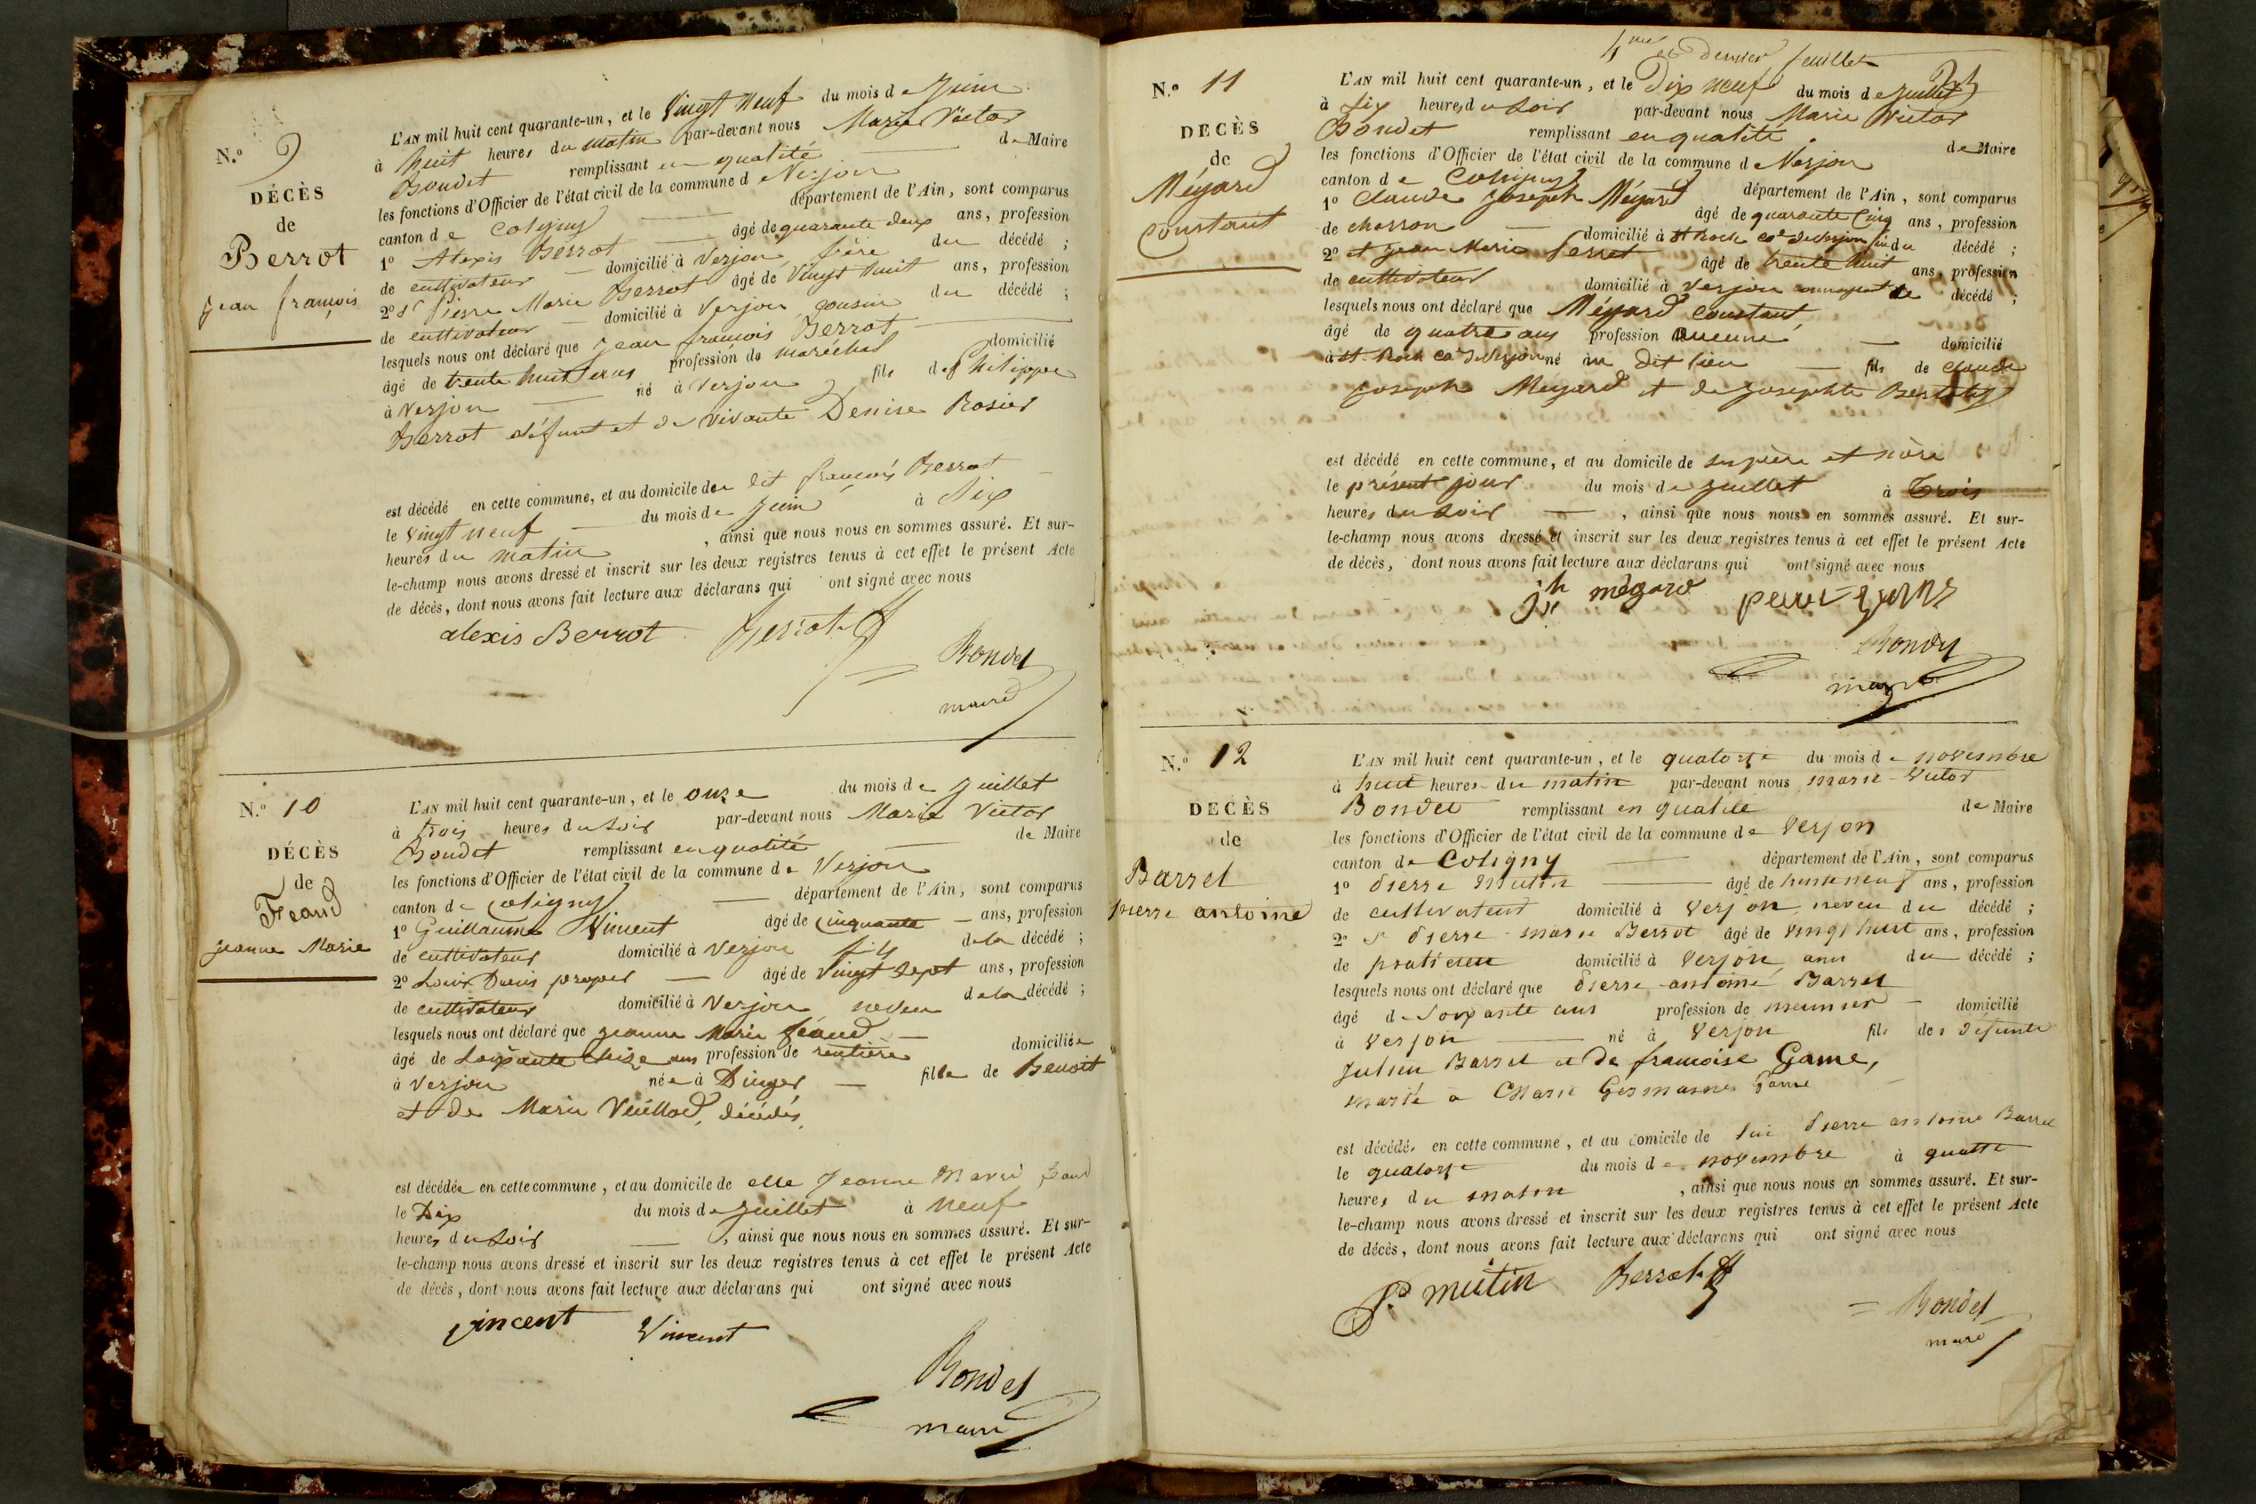 N.º 9
DÉCÈS
de
Berrot
Jean françois
L'AN mil huit cent quarante-un, et le Vingt neuf du mois de Juin
à huit heures du matin par-devant nous Marie Victor
Bondet remplissant en qualité de Maire
les fonctions d'Officier de l'état civil de la commune de Verjon
canton de Coligny département de l'Ain, sont comparus
1º Alexis Berrot âgé de quarante deux ans, profession
de cultivateur domicilié à Verjon frère du décédé ;
2º et Pierre Marie Berrot âgé de Vingt huit ans, profession
de cultivateur domicilié à Verjon cousin du décédé ;
lesquels nous ont déclaré que Jean françois Berrot
âgé de trente huit ans profession de maréchal domicilié
à Verjon né à Verjon fils de Philippe
Berrot défunt et de vivante Denise Rosier
est décédé en cette commune, et au domicile du dit françois Berrot
le vingt neuf du mois de Juin à Six
heures du matin , ainsi que nous nous en sommes assuré. Et sur-
le-champ nous avons dressé et inscrit sur les deux registres tenus à cet effet le présent Acte
de décès, dont nous avons fait lecture aux déclarans qui ont signé avec nous
alexis Berrot Berrot
Bondet
maire
N.º 10
DÉCÈS
de
Feaud
Jeanne Marie
L'AN mil huit cent quarante-un, et le onze du mois de Juillet
à trois heures du soir par-devant nous Marie Victor
Bondet remplissant en qualité de Maire
les fonctions d'Officier de l'état civil de la commune de Verjon
canton de Coligny département de l'Ain, sont comparus
1º Guillaume Vincent âgé de cinquante ans, profession
de cultivateur domicilié à Verjon fils de la décédé ;
2º Louis Denis âgé de Vingt sept ans, profession
de cultivateur domicilié à Verjon neveu de la décédé ;
lesquels nous ont déclaré que Jeanne Marie féaud
âgé de soixante seize ans profession de rentière domiciliée
à Verjon née à Dingier fille de Benoit
et de Marie Vuillod, décédés,
est décédée en cette commune, et au domicile de elle Jeanne Marie feaud
le Dix du mois de Juillet à neuf
heures du soir , ainsi que nous nous en sommes assuré. Et sur-
le-champ nous avons dressé et inscrit sur les deux registres tenus à cet effet le présent Acte
de décès, dont nous avons fait lecture aux déclarans qui ont signé avec nous
vincent Vincent
Bondet
maire
4me et dernier feuillet
N.º 11
DECÈS
de
Mégard
Constant
L'AN mil huit cent quarante-un, et le Dix neuf du mois de Juillet
à six heures du soir par-devant nous Marie Victor
Bondet remplissant en qualité de Maire
les fonctions d'Officier de l'état civil de la commune de Verjon
canton de Coligny département de l'Ain, sont comparus
1º Claude Joseph Mégard âgé de quarante Cinq ans, profession
de charron domicilié à St Roch cne de Verjon du décédé ;
2º et Jean Marie Perret âgé de trente huit ans, profession
de cultivateur domicilié à Verjon décédé ;
lesquels nous ont déclaré que Mégard Constant
âgé de quatre ans profession aucune domicilié
à St. Roch cne de Verjon né au dit lieu fils de Claude
Joseph Mégard et de Josephte
est décédé en cette commune, et au domicile de ses père et mère
le présent jour du mois de Juillet à Trois
heures du soir , ainsi que nous nous en sommes assuré. Et sur-
le-champ nous avons dressé et inscrit sur les deux registres tenus à cet effet le présent Acte
de décès, dont nous avons fait lecture aux déclarans qui ont signé avec nous
jh mégard
Bondet
maire
N.º 12
DECÈS
de
Barret
pierre antoine
L'AN mil huit cent quarante-un, et le quatorze du mois de novembre
à huit heures du matin par-devant nous marie Victor
Bondet remplissant en qualité de Maire
les fonctions d'Officier de l'état civil de la commune de Verjon
canton de Coligny département de l'Ain, sont comparus
1º Pierre Mutin âgé de trente neuf ans, profession
de cultivateur domicilié à Verjon neveu du décédé ;
2º et Pierre marie Berrot âgé de vingt huit ans, profession
de praticien domicilié à Verjon ami du décédé ;
lesquels nous ont déclaré que Pierre antoine Barret
âgé de soixante ans profession de meunier domicilié
à Verjon né à Verjon fils des défunts
Julien Barret et de françoise Game,
marié à Marie Germaine Game
est décédé, en cette commune, et au domicile de lui Pierre antoine Barret
le quatorze du mois de novembre à quatre
heures du matin , ainsi que nous nous en sommes assuré. Et sur-
le-champ nous avons dressé et inscrit sur les deux registres tenus à cet effet le présent Acte
de décès, dont nous avons fait lecture aux déclarans qui ont signé avec nous
P. mutin Berrot
Bondet
maire